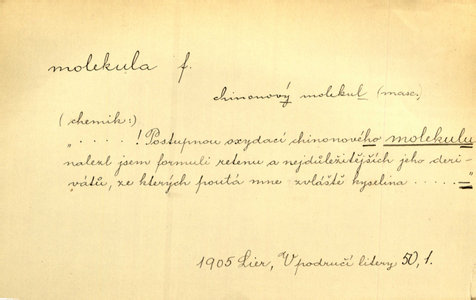 molekula f.
chinonový molekul (masc.)
(chemik:)
„ . . . . ! Postupnou oxydací chinonového molekulu
nalezl jsem formuli retenu a nejdůležitějších jeho deri-
vátů, ze kterých poutá mne zvláště kyselina . . . . . "
1905 Lier, V područí litery 50, 1.